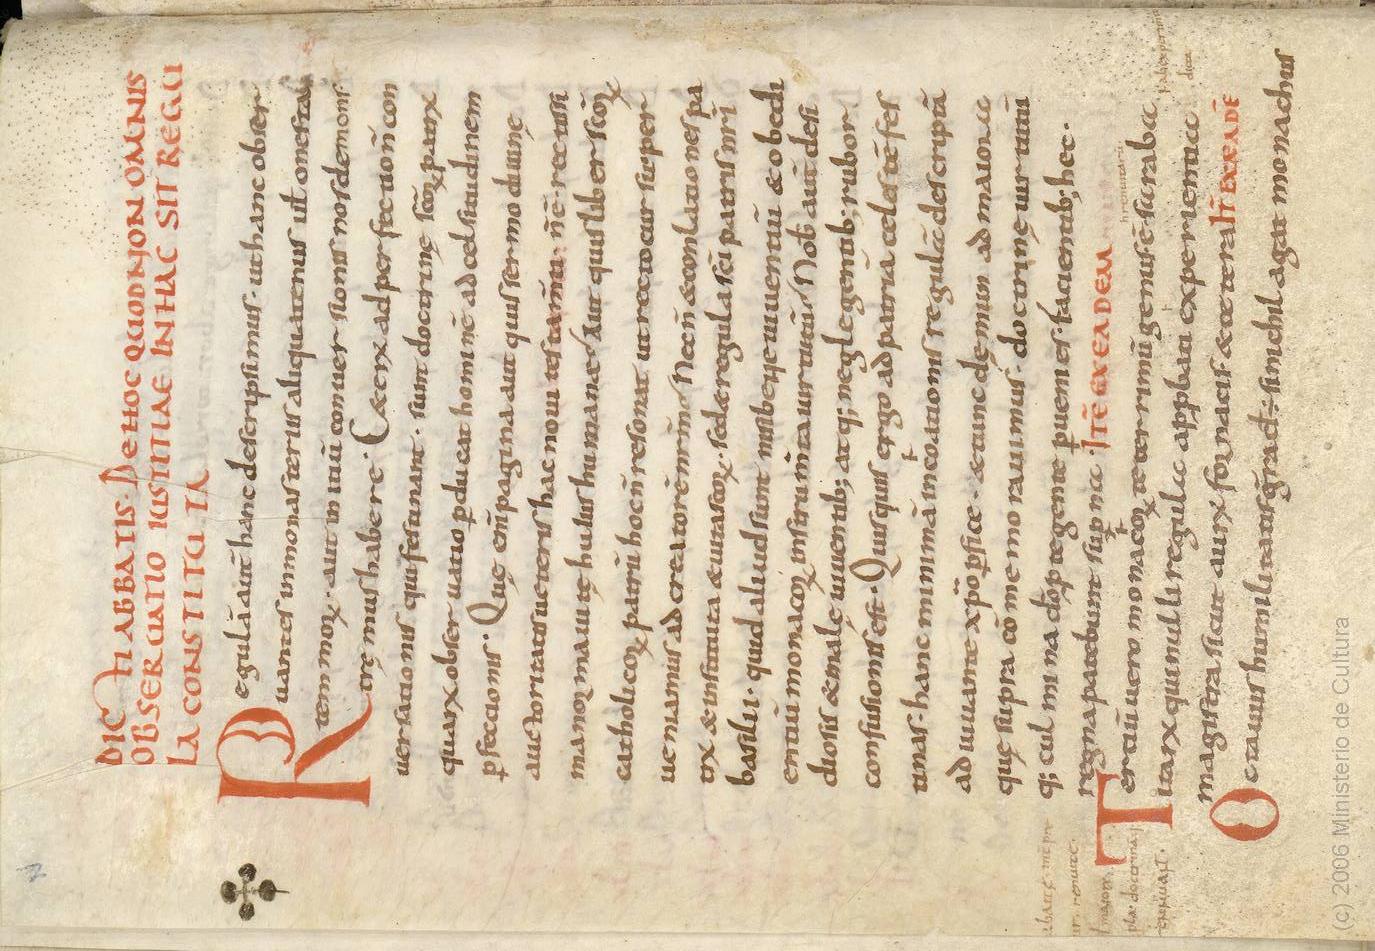 DIC̄TI ABBATIS · De HOC QUOD NON OMNIS
OBSERUATIO IUSTITIAE IN HAC SIT REGU
LA CONSTITUTA
Regulā aut̄ hanc descripsimus · ut hanc obser
uantes in monasteriis aliquatenus ut̄ honestatē
mor̄ · aut initiū conuersationis nos demons
tremus habere · Ceterx̄ ad perfectionē con
uersationis qui festinant · sunt doctrinę scōx̄ patrx̄
quarx̄ obseruatio p̱ducat hominē ad celsitudinem
p̱fectionis · Quę eni̅ pagina aut quis sermo diuinę
auctoritatis ueteris hac noui testamti · ñ ē rectissi
ma norma uitę hu̱ius humane · Aut quis liber scōx̄
catholicox̄ patrū hoc n̄ resonat ut recto cursu per
ueniamus ad creatorē nrm̄ Nec n̄ & conlationes pa
trx̄ & instituta & uitas eox̄ · sed & regula sc̄i patris nr̄i
basilii · quid aliud sunt nisi bene uiuentiū & obedi
entiū monacox̄ instrum̄ta uirtutū · Nob̄ aut̄ desi
diosis & male uiuentib; atq; neglegentib; rubor
confusionis est · Quisquis ergo ad patriā celestē fes
tinas · hanc minimā incoationis regulā descriptā
adiuuante xp̄o p̱fice · & tunc demum ad maiora
quę supra cōmemorauimus · doctrinę uirtutū
q; culmina dō p̱tegente p̱uenies · facientib; hec ·
regna patebunt superna · ITĒ EX EADEM
Tertiū uero monacox̄ teterrimū genus ē sarabai
tarx̄ qui nulla regula approbati experientia
magistra sicut aurx̄ fornacis & cetera ITĒ EX EADĒ
Octauus humilitatis grad; ē · si nichil agat monachus
(c) 2006 Ministerio de Cultura